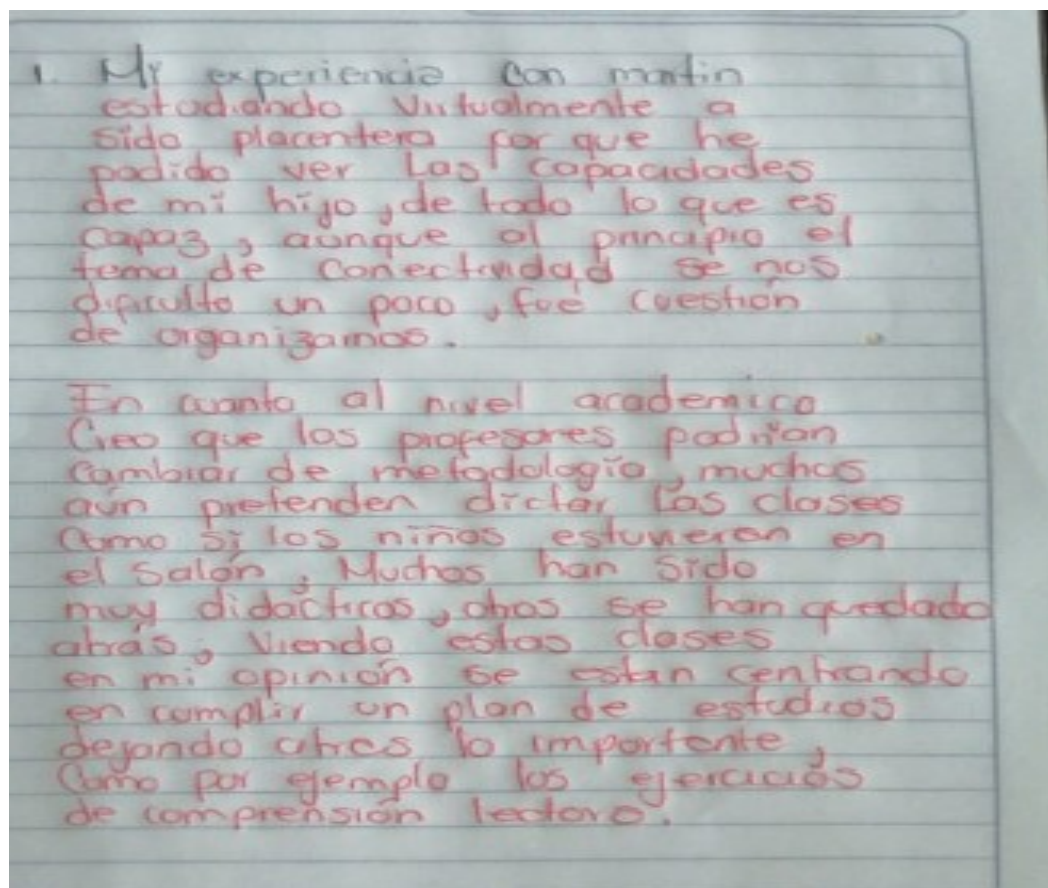 1. My experiencia con martin
estudiando Virtualmente a
sido placentera por que he
podido ver Las capacidades
de mi hijo, de todo lo que es
capaz, aunque al principio el
tema de conectividad se nos
dificulto un poco, fué cuestión
de organizarnos.
En cuanto al nivel academico
Creo que los profesores podrían
cambiar de metodología, muchos
aún pretenden dictar Las clases
Como si los niños estuvieran en
el Salón, Muchos han Sido
muy didácticos, otros se han quedado
atrás, Viendo estas clases
en mi opinión se estan centrando
en complir un plan de estudios
dejando atras lo importante,
Como por ejemplo los ejercicios
de comprensión lectora.